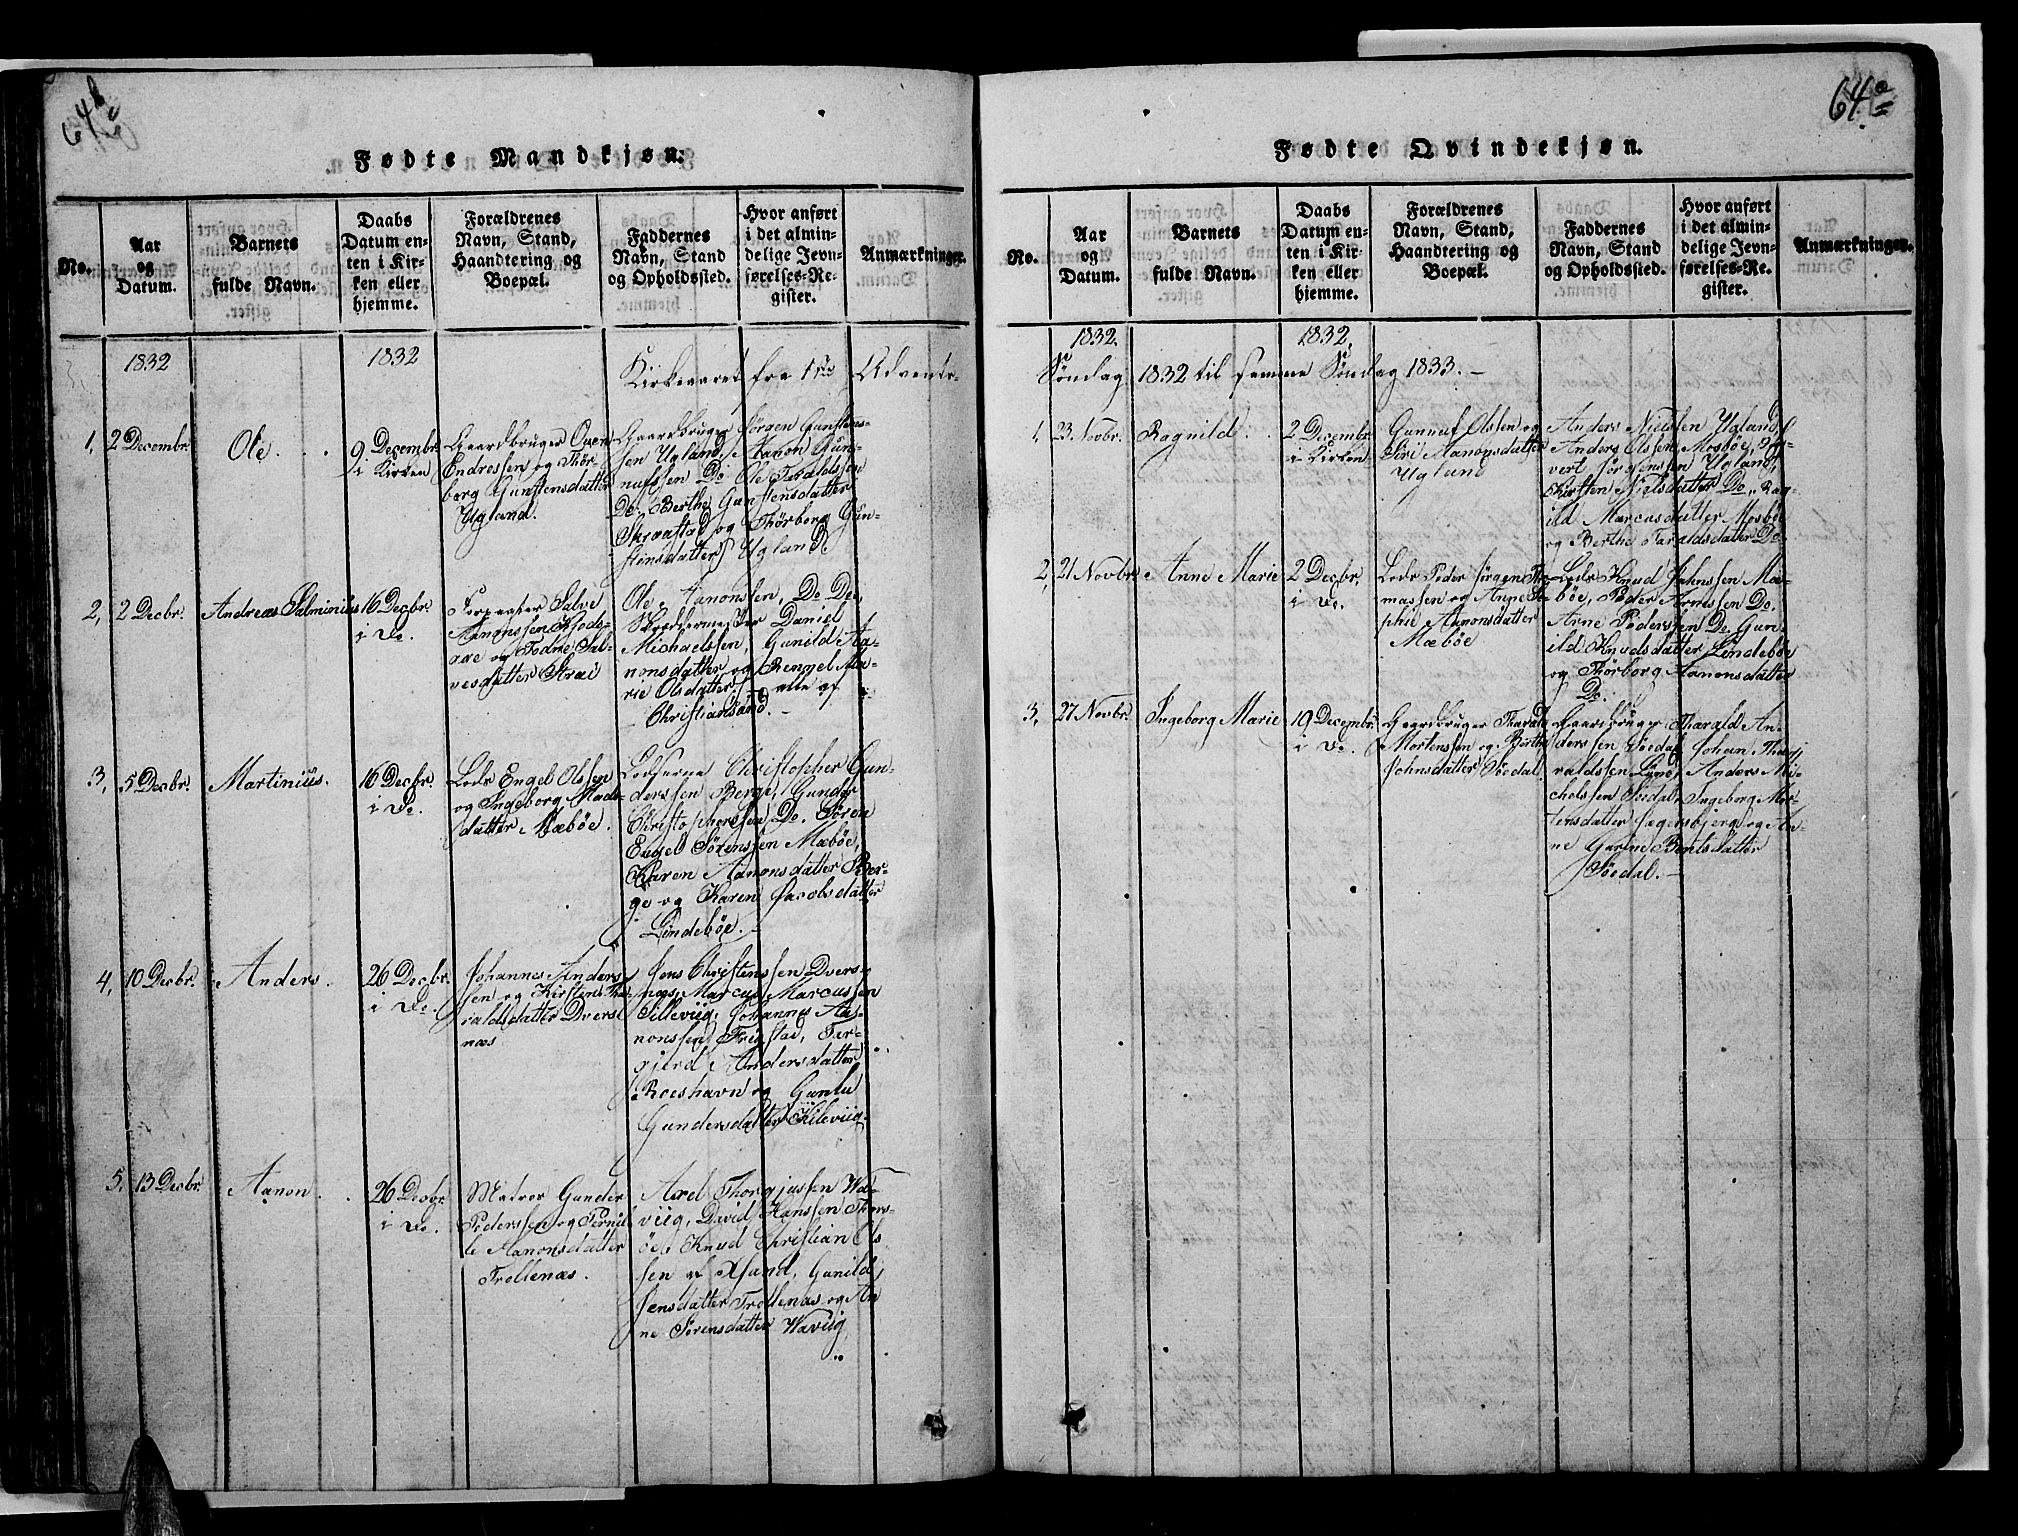 64b
Fødte Mandkjøn.
No.
Aar
og
Datum.
Barnets
fulde Navn.
Daabs
Datum en-
ten i Kir-
ken eller
hjemme.
Forældrenes
Navn, Stand,
Haandtering og
Boepæl.
Faddernes
Navn, Stand
og Opholdssted.
Hvor anført
i det almin-
delige Jevn-
førelses-Re-
gister.
Anmærkninger.
1832
1832
Kirkeaaret fra 1ste Advents-
1, 2 Decembr.
Ole
9 Decembr.
i Kirken
Gaardbruger Oven
Endressen og Thor-
borg Gunstensdatter
Ugland.
Gaardbruger Jørgen Gunstens-
sen Ugland, Aanon Gun-
nufssen Do Ole Taraldssen
Do. Berthe Gunstensdatter
Skraastad og Thorborg Gun-
stensdatter Ugland
2, 2 Decbr.
Andreas Salminius
16 Decbr.
i Do.
Salve
Aanonssen
og Todne Sal-
vesdatter Straie
Ole Aanonssen, Do Do,
Skræddermester Daniel
Michaelssen, Gunild Aa-
nonsdatter og Rengel Ma-
rie Olsdatter, alle af
Christiansand.
3, 5 Decbr.
Martinius.
16 Decbr.
i Do.
Lods Engel Olssen
og Ingeborg Mads-
datter Mæbøe.
Lodserne Christopher Gun-
derssen Berge, Gunder
Christopherssen Do. Søren
Engel Sørenssen Mæbøe,
Karen Aanonsdatter Ber-
ge og Karen Jacobsdatter
Lindebøe.
4, 10 Decbr.
Anders.
26 Decbr.
i Do.
Johannes Anders-
sen og Kirsten Tha-
raldsdatter Dvers-
næs
Jens Christenssen Dvers-
næs, Marcus Marcussen
Killeviig, Johannes Aa-
nonssen Frigstad, Ter-
gjerd Andersdatter
Roeshavn og Gunlu
Gundersdatter Kileviig
5, 13 Decbr.
Aanon
26 Decbr.
i Do.
Matros Gunder
Pederssen og Pernil-
le Aanonsdatter
Trollenæs.
Axel Thorgjussen Wa-
viig, David Hanssen Thors-
øe, Knud Christian Ols-
sen af Xsand, Gunild
Jensdatter Trollenæs og An-
ne Sørensdatter Waviig
64a
Fødte Qvindekjøn.
No.
Aar
og
Datum.
Barnets
fulde Navn.
Daabs
Datum en-
ten i Kir-
ken eller
hjemme.
Forældrenes
Navn, Stand,
Haandtering og
Boepæl.
Faddernes
Navn, Stand
og Opholdssted.
Hvor anført
i det almin-
delige Jevn-
førelses-Re-
gister.
Anmærkninger.
1832.
1832.
Søndag 1832 til samme Søndag 1833. -
1, 23 Novbr.
Ragnild
2 Decembr.
i Kirken
Gunnuf Olssen og
Siri Aanonsdatter
Ugland
Anders Nielsen Ugland,
Anders Olssen Mosbøe, Sy-
vert Jørgenssen Ugland,
Kirsten Nielsdatter Do, Rag-
ild Marcusdatter Mosbøe
og Berthe Taraldsdatter Do
2, 21 Novbr.
Anne Marie
2 Decbr.
i Do.
Lods Peder Jørgen Tho-
massen og Anne So-
phie Aanonsdatter
Mæbøe
Lods Knud Johnssen Mæ-
bøe, Peder Arnessen Do.
Arne Pederssen Do, Gun-
ild Knudsdatter Lindebøe
og Thorborg Aanonsdatter
Do
3, 27 Novbr.
Ingeborg Marie
19 Decembr.
i Do.
Gaardbruger Tharald
Mortenssen og Berthe
Johnsdatter Søedal
Gaardbruger Tharald An-
derssen Søedal, Johan Tha-
raldssen Lund, Anders Mi-
chelssen Søedal, Ingeborg Mor-
tensdatter Jægersbjerg og An-
ne Garine Bentsdatter
Søedal. -